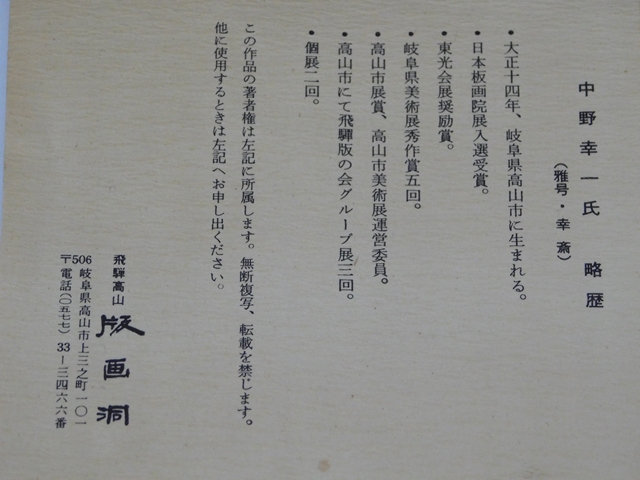 中野幸一氏 略歴
(雅号・幸斎)
・大正十四年、岐阜県高山市に生まれる。
・日本板画院展入選受賞。
・東光会展奨励賞。
・岐阜県美術展秀作賞五回。
・高山市展賞、高山市美術展運営委員。
・高山市にて飛驒版の会グループ展三回。
・個展二回。
この作品の著者権は左記に所属します。無断複写、転載を禁じます。
他に使用するときは左記へお申し出ください。
飛驒高山 版画洞
〒506 岐阜県高山市上三之町一〇一
電話(〇五七七)33-三四六六番